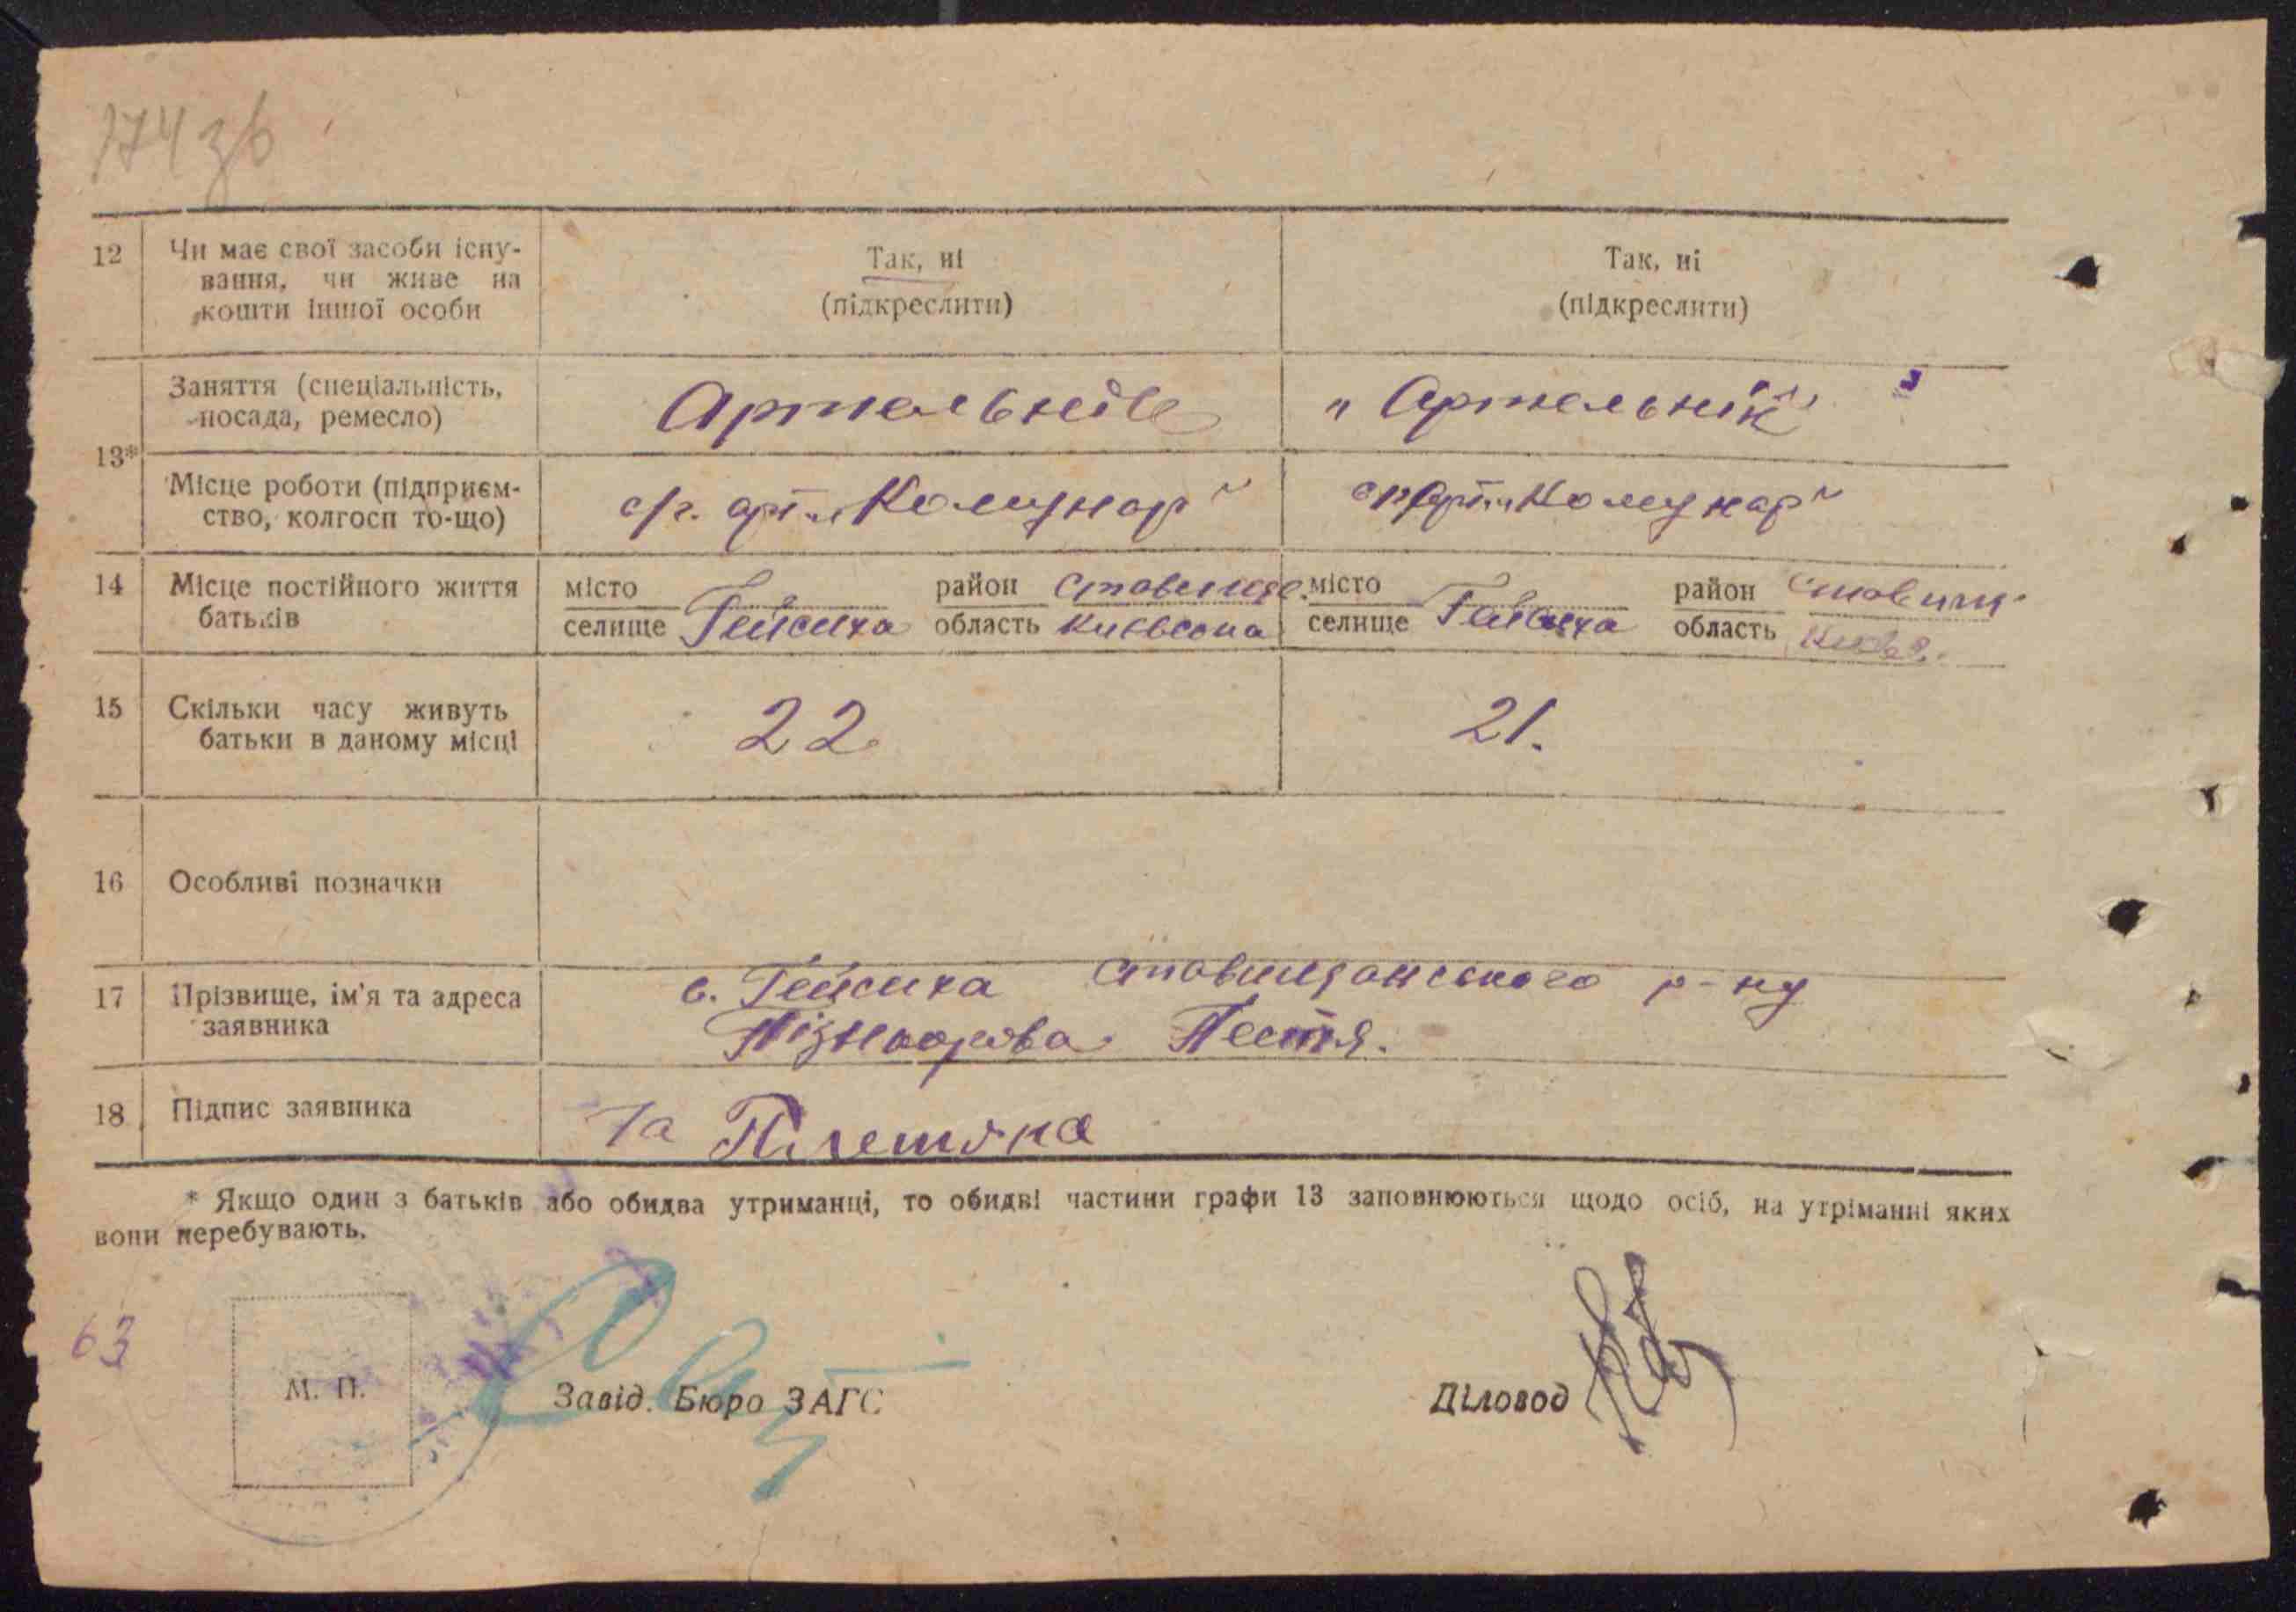 174 зв
12 Чи має свої засоби існу-
вання, чи живе на
кошти іншої особи
Так, ні
(підкреслити)
Так, ні
(підкреслити)
13*
Заняття (спеціальність,
посада, ремесло)
Артельнік
"Артельнік"
Місце роботи (підприєм-
ство, колгосп то-що)
с/г. арт. „Комунар"
с/г арт. „Комунар"
14 Місце постійного життя
батьків
місто
селище Гейсиха
район Ставище.
область Київська
місто
селище Гейсиха
район Ставищ.
область
15 Скільки часу живуть
батьки в даному місці
22
21.
16 Особливі позначки
17 Прізвище, ім'я та адреса
заявника
с. Гейсиха Ставищанського р-ну
18 Підпис заявника
За
* Якщо один з батьків або обидва утриманці, то обидві частини графи 13 заповнюються щодо осіб, на утріманні яких
вони перебувають.
63
М. П.
Завід. Бюро ЗАГС
Діловод